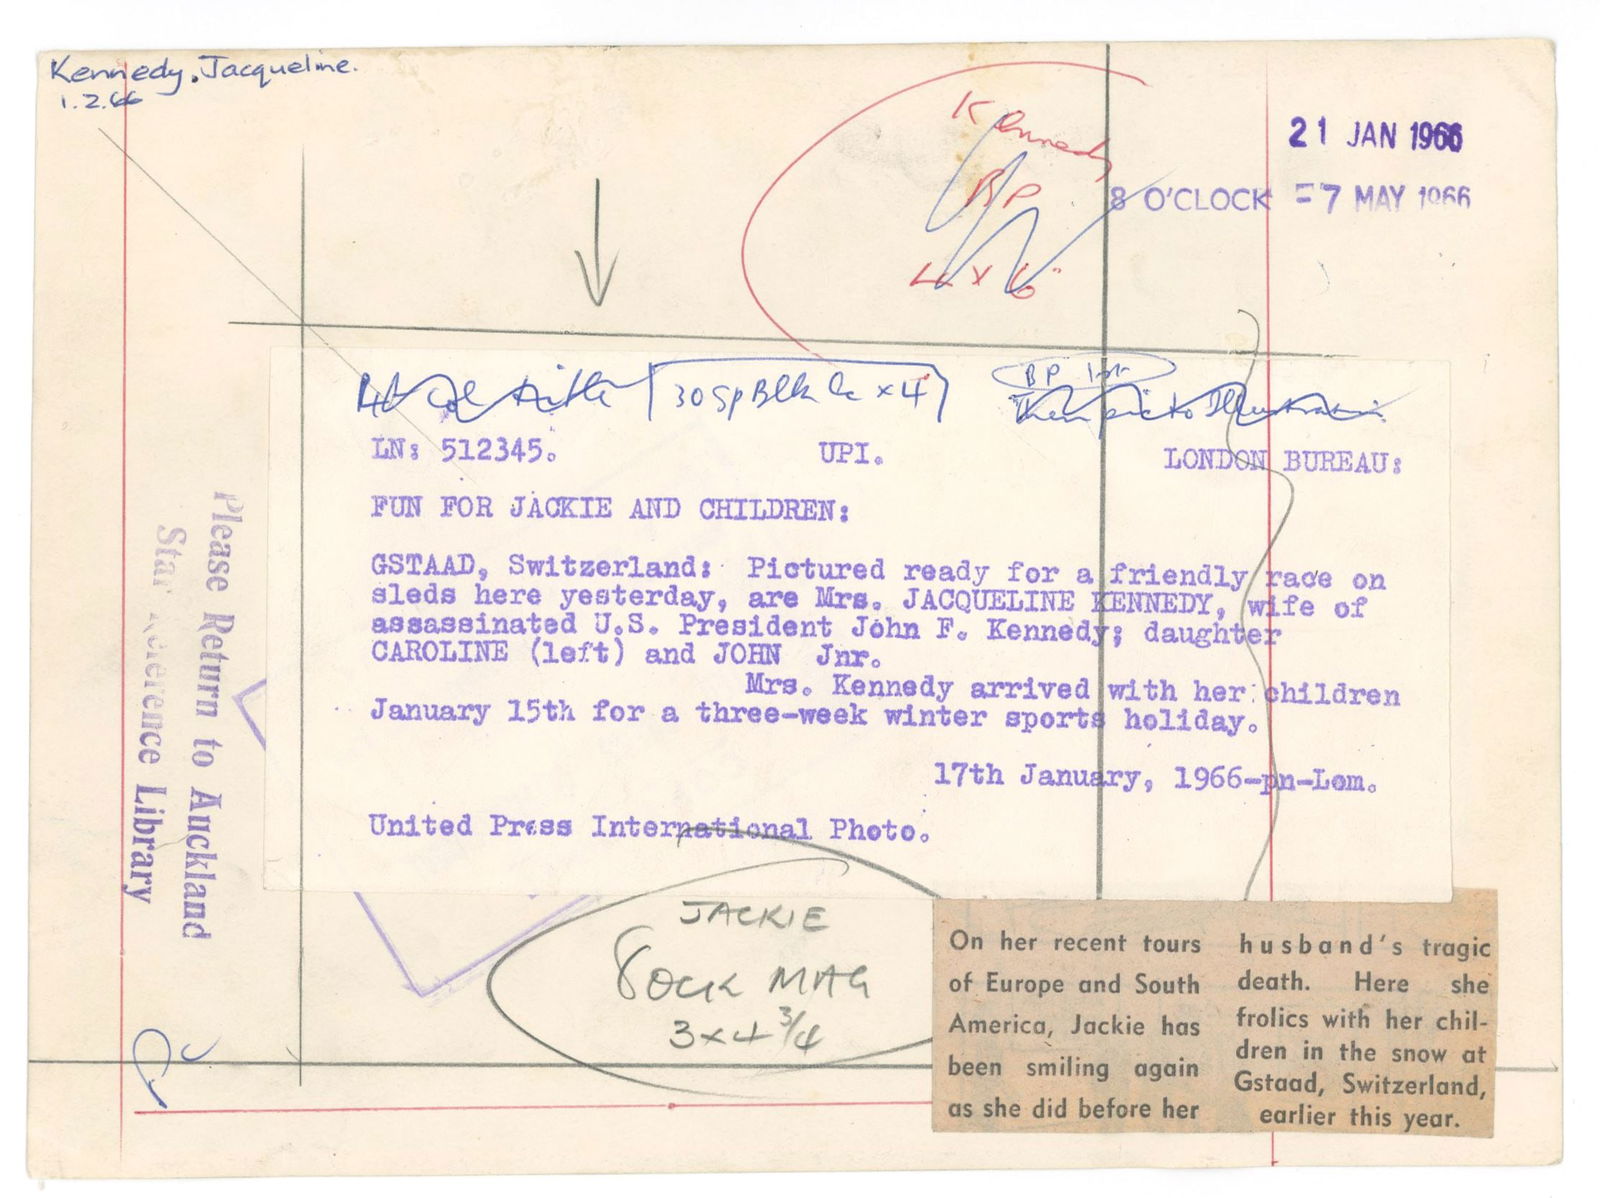 Kennedy. Jacqueline.
1.2.66
Kennedy
BP
4 x 6"
21 JAN 1966
8 O'CLOCK =7 MAY 1966
BP
x 4
LN: 512345. UPI. LONDON BUREAU:
FUN FOR JACKIE AND CHILDREN:
GSTAAD, Switzerland: Pictured ready for a friendly race on
sleds here yesterday, are Mrs. JACQUELINE KENNEDY, wife of
assassinated U.S. President John F. Kennedy; daughter
CAROLINE (left) and JOHN Jnr.
Mrs. Kennedy arrived with her children
January 15th for a three-week winter sports holiday.
17th January, 1966-pn-Lom.
United Press International Photo.
Please Return to Auckland
Star Reference Library
JACKIE
8 OCK MAG
3 x 4 3/4
On her recent tours
of Europe and South
America, Jackie has
been smiling again
as she did before her
husband's tragic
death. Here she
frolics with her chil-
dren in the snow at
Gstaad, Switzerland,
earlier this year.